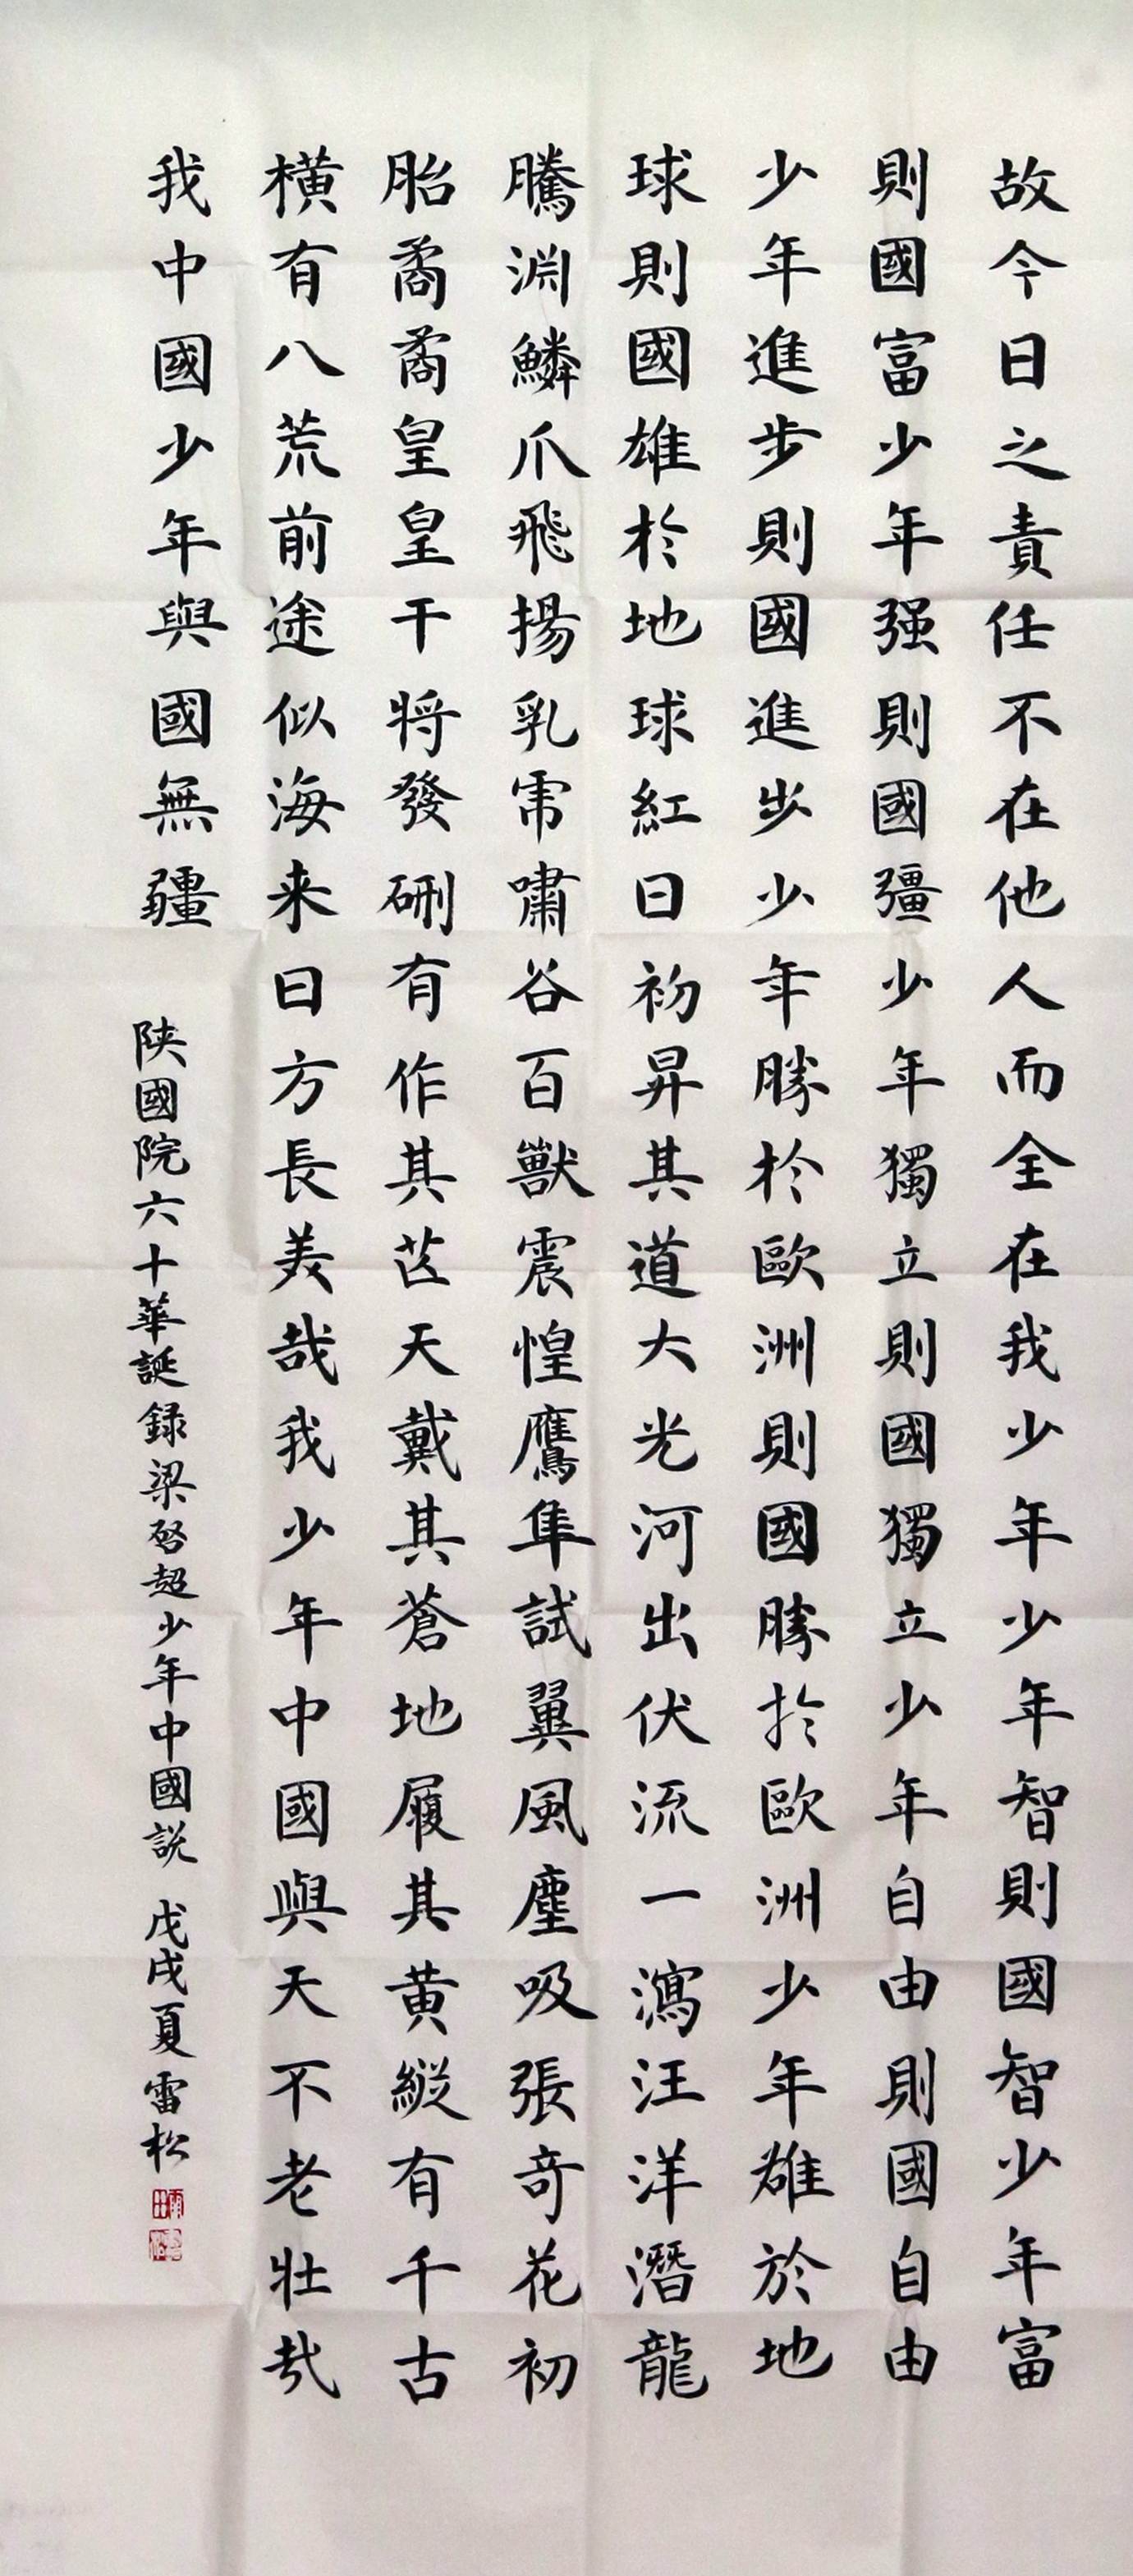 故今日之責任不在他人而全在我少年少年智則國智少年富
則國富少年强則國彊少年獨立則國獨立少年自由則國自由
少年進步則國進步少年勝於歐洲則國勝於歐洲少年雄於地
球則國雄於地球紅日初昇其道大光河出伏流一瀉汪洋潛龍
騰淵鱗爪飛揚乳虎嘯谷百獸震惶鷹隼試翼風塵吸張奇花初
胎矞矞皇皇干將發硎有作其芒天戴其蒼地履其黄縱有千古
橫有八荒前途似海来日方長美哉我少年中國與天不老壯哉
我中國少年與國無疆
陕國院六十華誕録梁啓超少年中國説 戊戌夏雷松